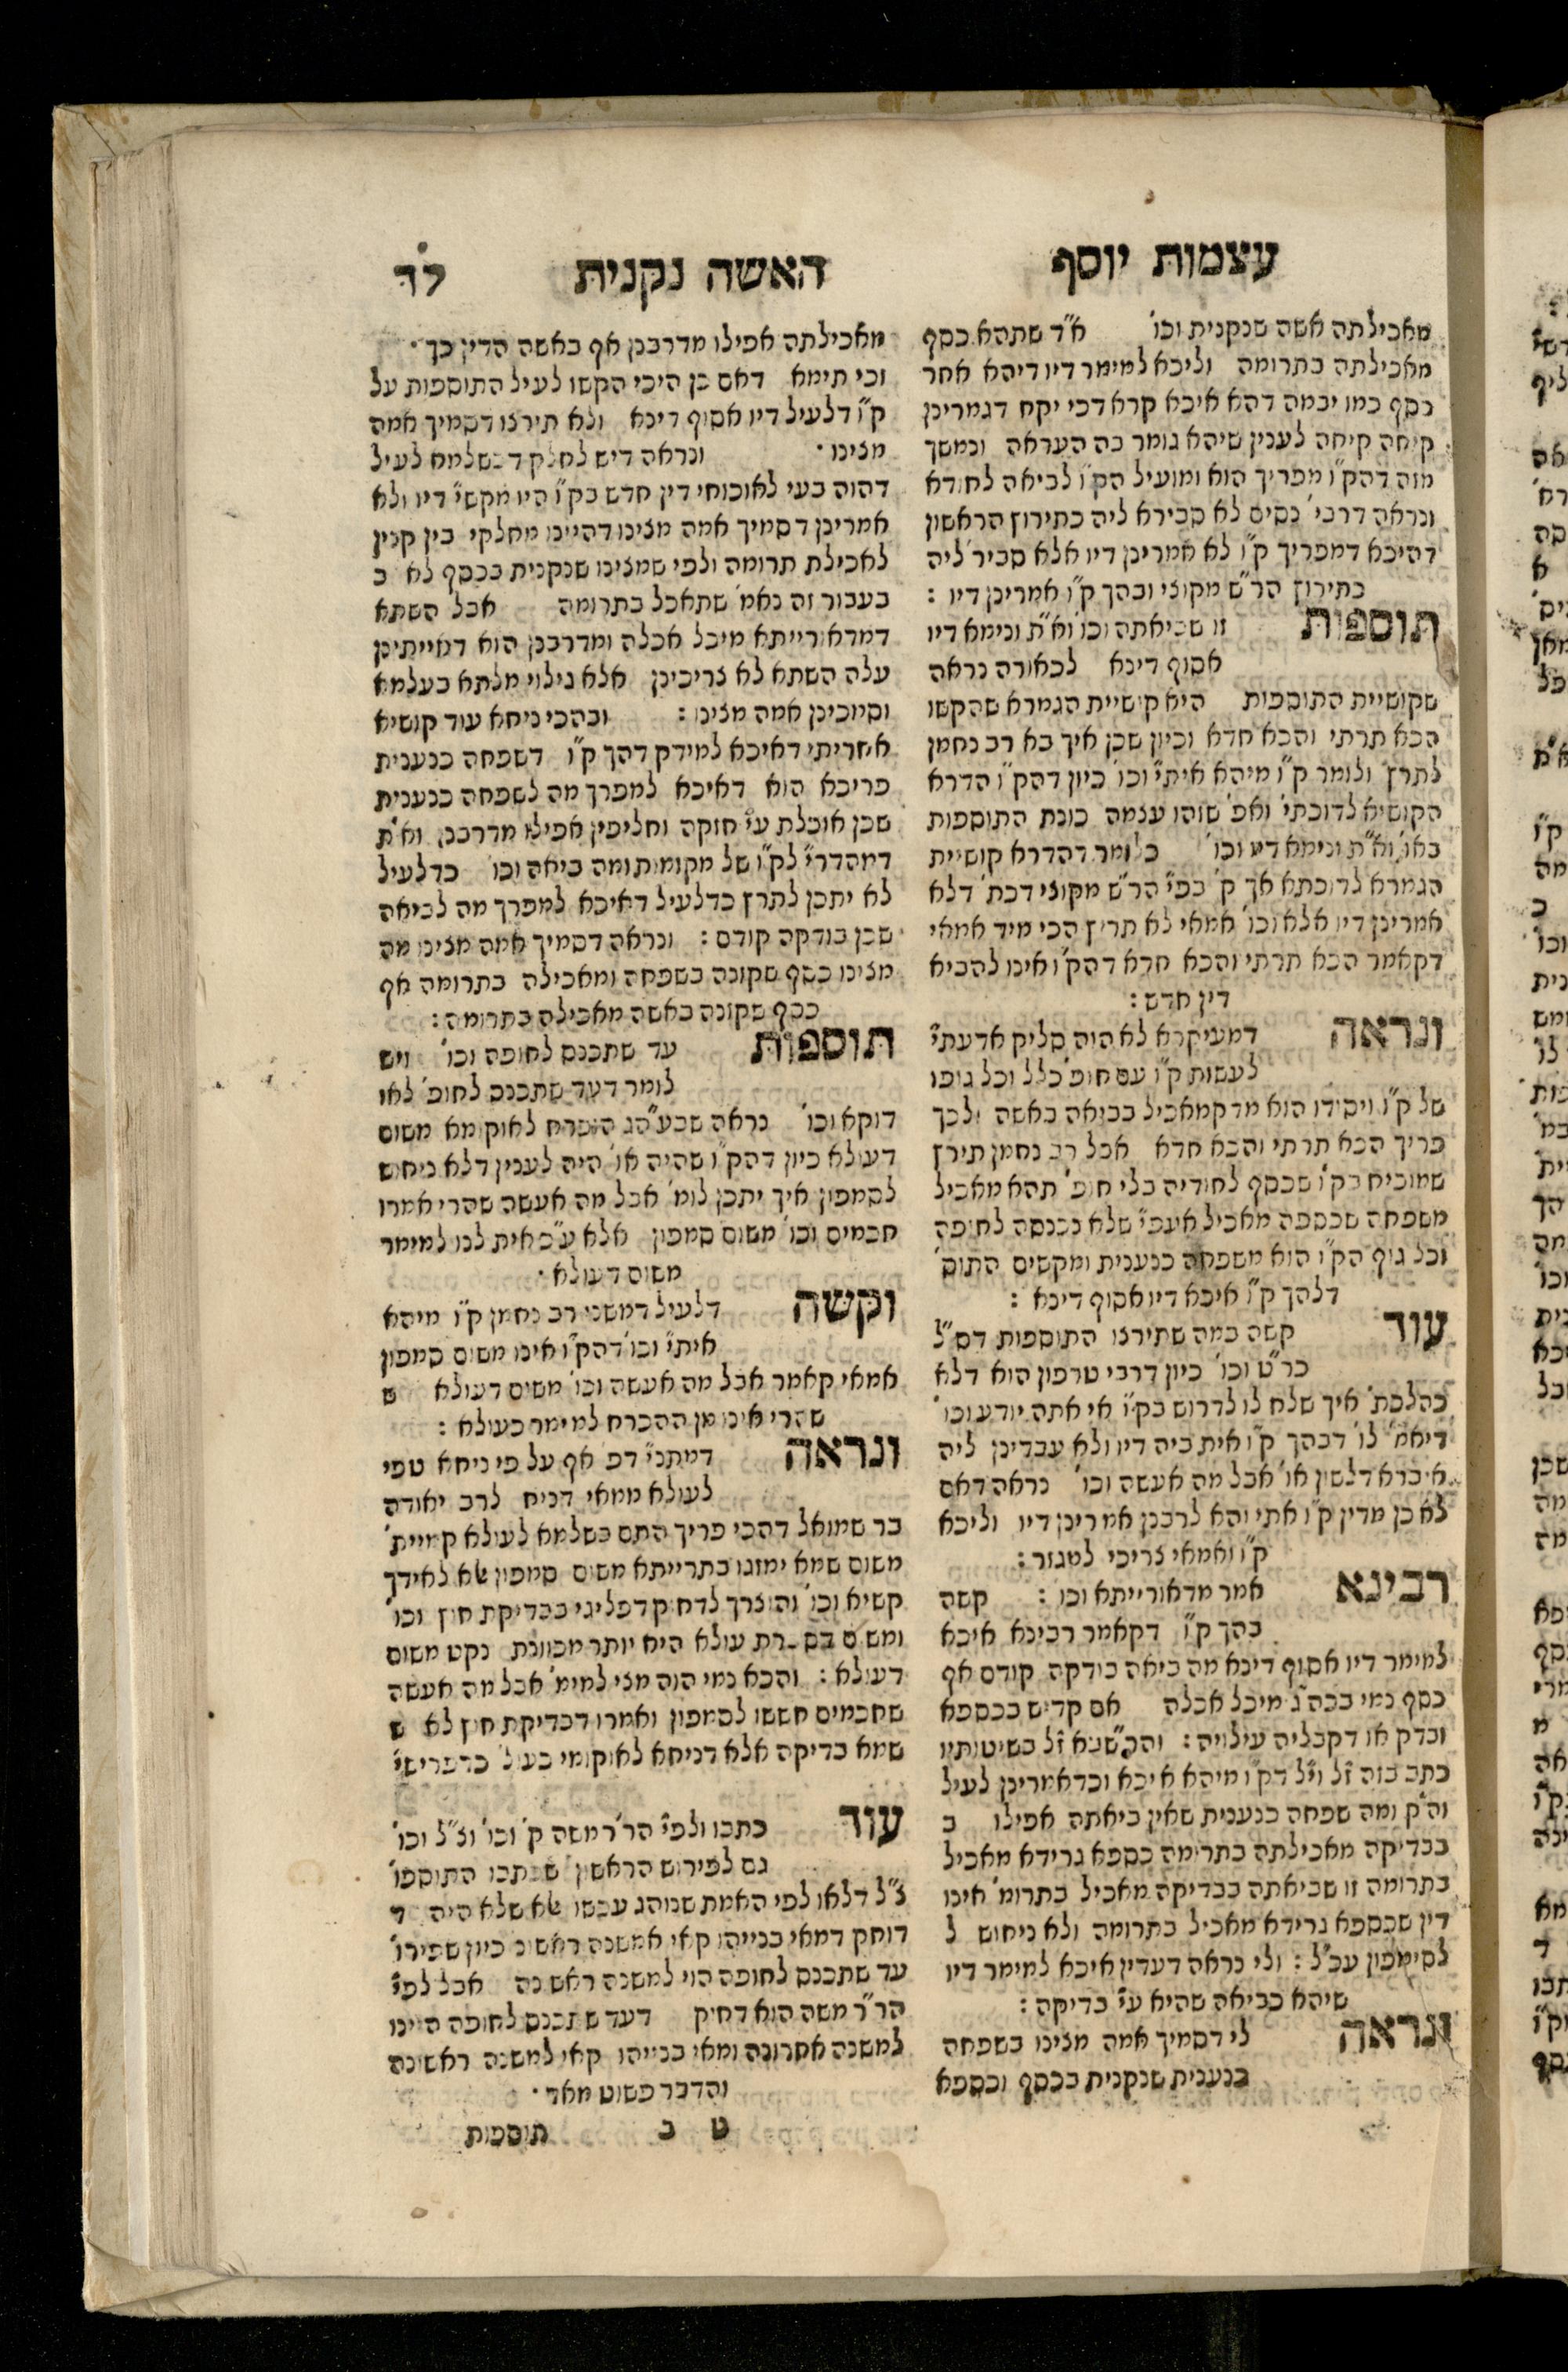 עצמות יוסף
האשה נקנית
לד
מאכילתה אשה שנקנית וכו' א"ד שתהא כסף
מאכילתה בתרומה וליכא למימר דיו דיהא אחר
כסף כמו יבמה דהא איכא קרא דכי יקח דגמרינן
קיחה קיחה לענין שיהא גומר בה העראה ונמשך
מזה דהק"ו מפריך הוא ומועיל הק"ו לביאה לחודא
ונראה דרבי' נסים לא סבירא ליה כתירוץ הראשון
דהיכא דמפריך ק"ו לא אמרינן דיו אלא סביר' ליה
כתירוץ הר"ש מקוצי ובהך ק"ו אמרינן דיו :
תוספות זו שביאתה וכו' וא"ת ונימא דיו
אסוף דינא לכאורה נראה
שקושיית התוספות היא קושיית הגמרא שהקשו
הכא תרתי והכא חדא וכיון שכן איך בא רב נחמן
לתרץ ולומר ק"ו מיהא אית"י וכו' כיון דהק"ו הדרא
הקושיא לדוכתי' ואפ' שזהו עצמה כונת התוספות
באו' וא"ת ונימא דיו וכו' כלומר דהדרא קושיית
הגמרא לדוכתא אך ק' בפי' הר"ש מקוצי דכת' דלא
אמרינן דיו אלא וכו' אמאי לא תריץ הכי מיד אמאי
דקאמר הכא תרתי והכא חדא דהק"ו אינו להביא
דין חדש :
ונראה דמעיקרא לא הוה סליק אדעתי'
לעשות ק"ו עם חופ' כלל וכל גופו
של ק"ו ויסודו הוא מדקמאכיל בביאה באשה ולכך
פריך הכא תרתי והכא חדא אבל רב נחמן תירץ
שמוכיח בק"ו שכסף לחודיה בלי חופ' תהא מאכיל
משפחה שכספה מאכיל אעפ"י שלא נכנסה לחופה
וכל גוף הק"ו הוא משפחה כנענית ומקשים התוס'
דלהך ק"ו איכא דיו אסוף דינא :
עוד קשה במה שתירצו התוספות דס"ל
כר"ט וכו' כיון דרבי טרפון הוא דלא
כהלכת' איך שלח לו לדרוש בק"ו אי אתה יודע וכו'
דיאמ' לו' דבהך ק"ו אית ביה דיו ולא עבדינן ליה
איברא דלשון או' אבל מה אעשה וכו' נראה דאם
לא כן מדין ק"ו אתי והא לרבנן אמרינן דיו וליכא
ק"ו ואמאי צריכי למגזר :
רבינא אמר מדאורייתא וכו' : קשה
בהך ק"ו דקאמר רבינא איכא
למימר דיו אסוף דינא מה ביאה בודקה קודם אף
כסף נמי בכה"ג מיכל אכלה אם קדיש בכספא
ובדק או דקבליה עילויה : והרשב"א ז"ל בשיטותיו
כתב בזה ז"ל וי"ל דק"ו מיהא איכא וכדאמרינן לעיל
וה"ק ומה שפחה כנענית שאין ביאתה אפילו ב
בבדיקה מאכילתה בתרומה כספא גרידא מאכיל
בתרומה זו שביאתה בבדיקה מאכיל בתרומ' אינו
דין שכספא גרידא מאכיל בתרומה ולא ניחוש ל
לסימפון עכ"ל : ולי נראה דעדין איכא למימר דיו
שיהא כביאה שהיא ע"י בדיקה :
ונראה לי דסמיך אמה מצינו בשפחה
כנענית שנקנית בכסף וכספא
מאכילתה אפילו מדרבנן אף באשה הדין כך ·
וכי תימא דאם כן היכי הקשו לעיל התוספות על
ק"ו דלעיל דיו אסוף דינא ולא תירצו דסמיך אמה
מצינו · ונראה דיש לחלק דבשלמא לעיל
דהוה בעי לאוכוחי דין חדש בק"ו היו מקשי' דיו ולא
אמרינן דסמיך אמה מצינו דהיינו מחלקי' בין קנין
לאכילת תרומה ולפי שמצינו שנקנית בכסף לא ב
בעבור זה נאמ' שתאכל בתרומה אבל השתא
דמדאורייתא מיכל אכלה ומדרבנן הוא דאייתינן
עלה השתא לא צריכינן אלא גילוי מלתא בעלמא
וסמכינן אמה מצינו : ובהכי ניחא עוד קושיא
אחריתי דאיכא למידק דהך ק"ו דשפחה כנענית
פריכא הוא דאיכא למפרך מה לשפחה כנענית
שכן אוכלת ע"י חזקה וחליפין אפילו מדרבנן וא"ת
דמהדרי' לק"ו של מקומות ומה ביאה וכו' כדלעיל
לא יתכן לתרץ כדלעיל דאיכא למפרך מה לביאה
שכן בודקה קודם : ונראה דסמיך אמה מצינו מה
מצינו כסף שקונה בשפחה ומאכילה בתרומה אף
כסף שקונה באשה מאכילה בתרומה :
תוספות עד שתכנס לחופה וכו' ויש
לומר דעד שתכנס לחופ' לאו
דוקא וכו' נראה שבע"הג הוכרח לאוקומא משום
דעולא כיון דהק"ו שהיה או' היה לענין דלא ניחוש
לסמפון איך יתכן לומ' אבל מה אעשה שהרי אמרו
חכמים וכו' משום סמפון אלא ע"כ אית לנו למימר
משום דעולא ·
וקשה דלעיל דמשני רב נחמן ק"ו מיהא
אית"י וכו' דהק"ו אינו משום סמפון
אמאי קאמר אבל מה אעשה וכו' משום דעולא ש
שהרי אינו מן ההכרח למימר כעולא :
ונראה דמתני' דפ' אף על פי ניחא טפי
לעולא ממאי דניח' לרב יאודה
בר שמואל דהכי פריך התם בשלמא לעולא קמיית'
משום שמא ימזגו בתרייתא משום סמפון אלא לאידך
קשיא וכו' והוצרך לדחוק דפליגי בבדיקת חוץ וכו'
עולא היא יותר מכוונת נקט משום
דעולא : והכא נמי הוה מצי למימ' אבל מה אעשה
שחכמים חששו לסמפון ואמרו דבדיקת חוץ לא ש
שמא בדיקה אלא דניחא לאוקומי כעול' כדפרישי'
עוד כתבו ולפי' הר"ר משה ק' וכו' וצ"ל וכו'
גם לפירוש הראשון שכתבו התוספו'
צ"ל דלאו לפי האמת שנוהג עכשו אלא שלא היה ד
דוחק דמאי בנייהו קאי אמשנה ראשונ' כיון שפירו'
עד שתכנס לחופה הוי למשנה ראשונה אבל לפי'
הר"ר משה הוא דחיק דעד שתכנס לחופה היינו
למשנה אחרונה ומאי בנייהו קאי למשנה ראשונה
והדבר פשוט מאד ·
ט ב
תוספות